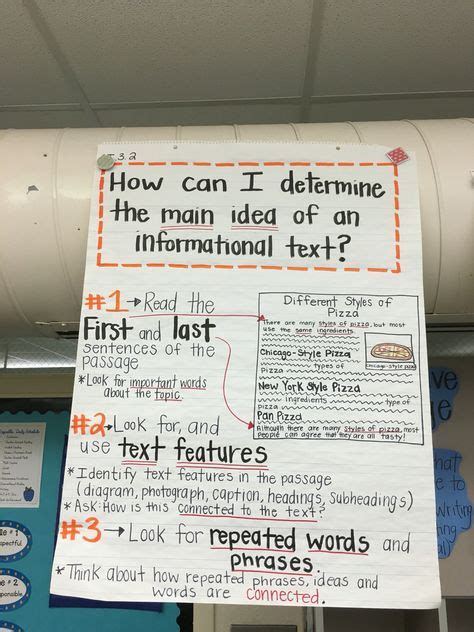 .3.2
How can I determine
the main idea of an
informational text?
#1 → Read the
First and last
sentences of the
passage
*Look for important words
about the topic.
Different Styles of
Pizza
There are many styles of pizza, but most
use the same ingredients.
Chicago-Style Pizza
types of
Pizza
Chicago-style Pizza
New York Style Pizza
ingredients type of
Pizza
Pan Pizza
Although there are many styles of pizza, most
People can agree that they are all tasty!
#2 → Look for, and
use text features
*Identify text features in the passage
(diagram, photograph, caption, headings, subheadings)
*Ask: How is this connected to the text?
#3 → Look for repeated words and
phrases.
*Think about how repeated phrases, ideas and
words are connected.
#1
#2